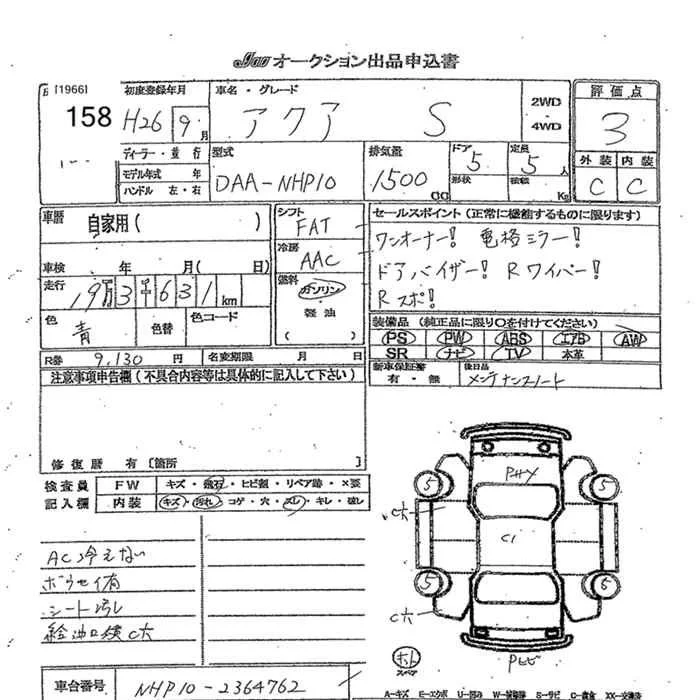 jau オークション出品申込書
[1966]
158
初度登録年月
H26 9月
車名・グレード
アクア S
2WD
4WD
評価点
3
外装 内装
C C
ディーラー・並行
モデル年式 年
ハンドル 左・右
型式
DAA-NHP10
排気量
1500 cc
ドア 5
形状
定員 5 人
積載 Kg
車歴
自家用( )
車検 年 月( 日)
走行
19万3千631km
色
青
色替
色コード
シフト
FAT
冷房
AAC
燃料
ガソリン
軽油
( )
セールスポイント(正常に機能するものに限ります)
ワンオーナー! 電格ミラー!
ドアバイザー! Rワイパー!
Rスポ!
装備品(純正品に限り○を付けてください)
PS PW ABS エアB AW
SR ナビ TV 本革
新車保証書
有・無
後日品
メンテナンスノート
R券 9,130 円
名変期限 月 日
注意事項申告欄(不具合内容等は具体的に記入して下さい)
修復歴 有〔箇所 〕
検査員
記入欄
FW キズ・飛石・ヒビ割・リペア跡・×要
内装 キズ・汚れ・コゲ・穴・スレ・キレ・破レ
AC冷えない
ボウセイ有
シート汚レ
給油口横C大
PHY
5 5
C大
C1
5 5
C大
スペア
車台番号
NHP10-2364762
A-キズ E-エクボ U-凹み W-補修跡 S-サビ C-腐食 XX-交換済